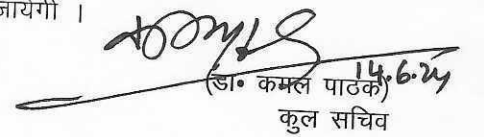 जायेगी ।
14.6.24
(डा॰ कमल पाठक)
कुल सचिव